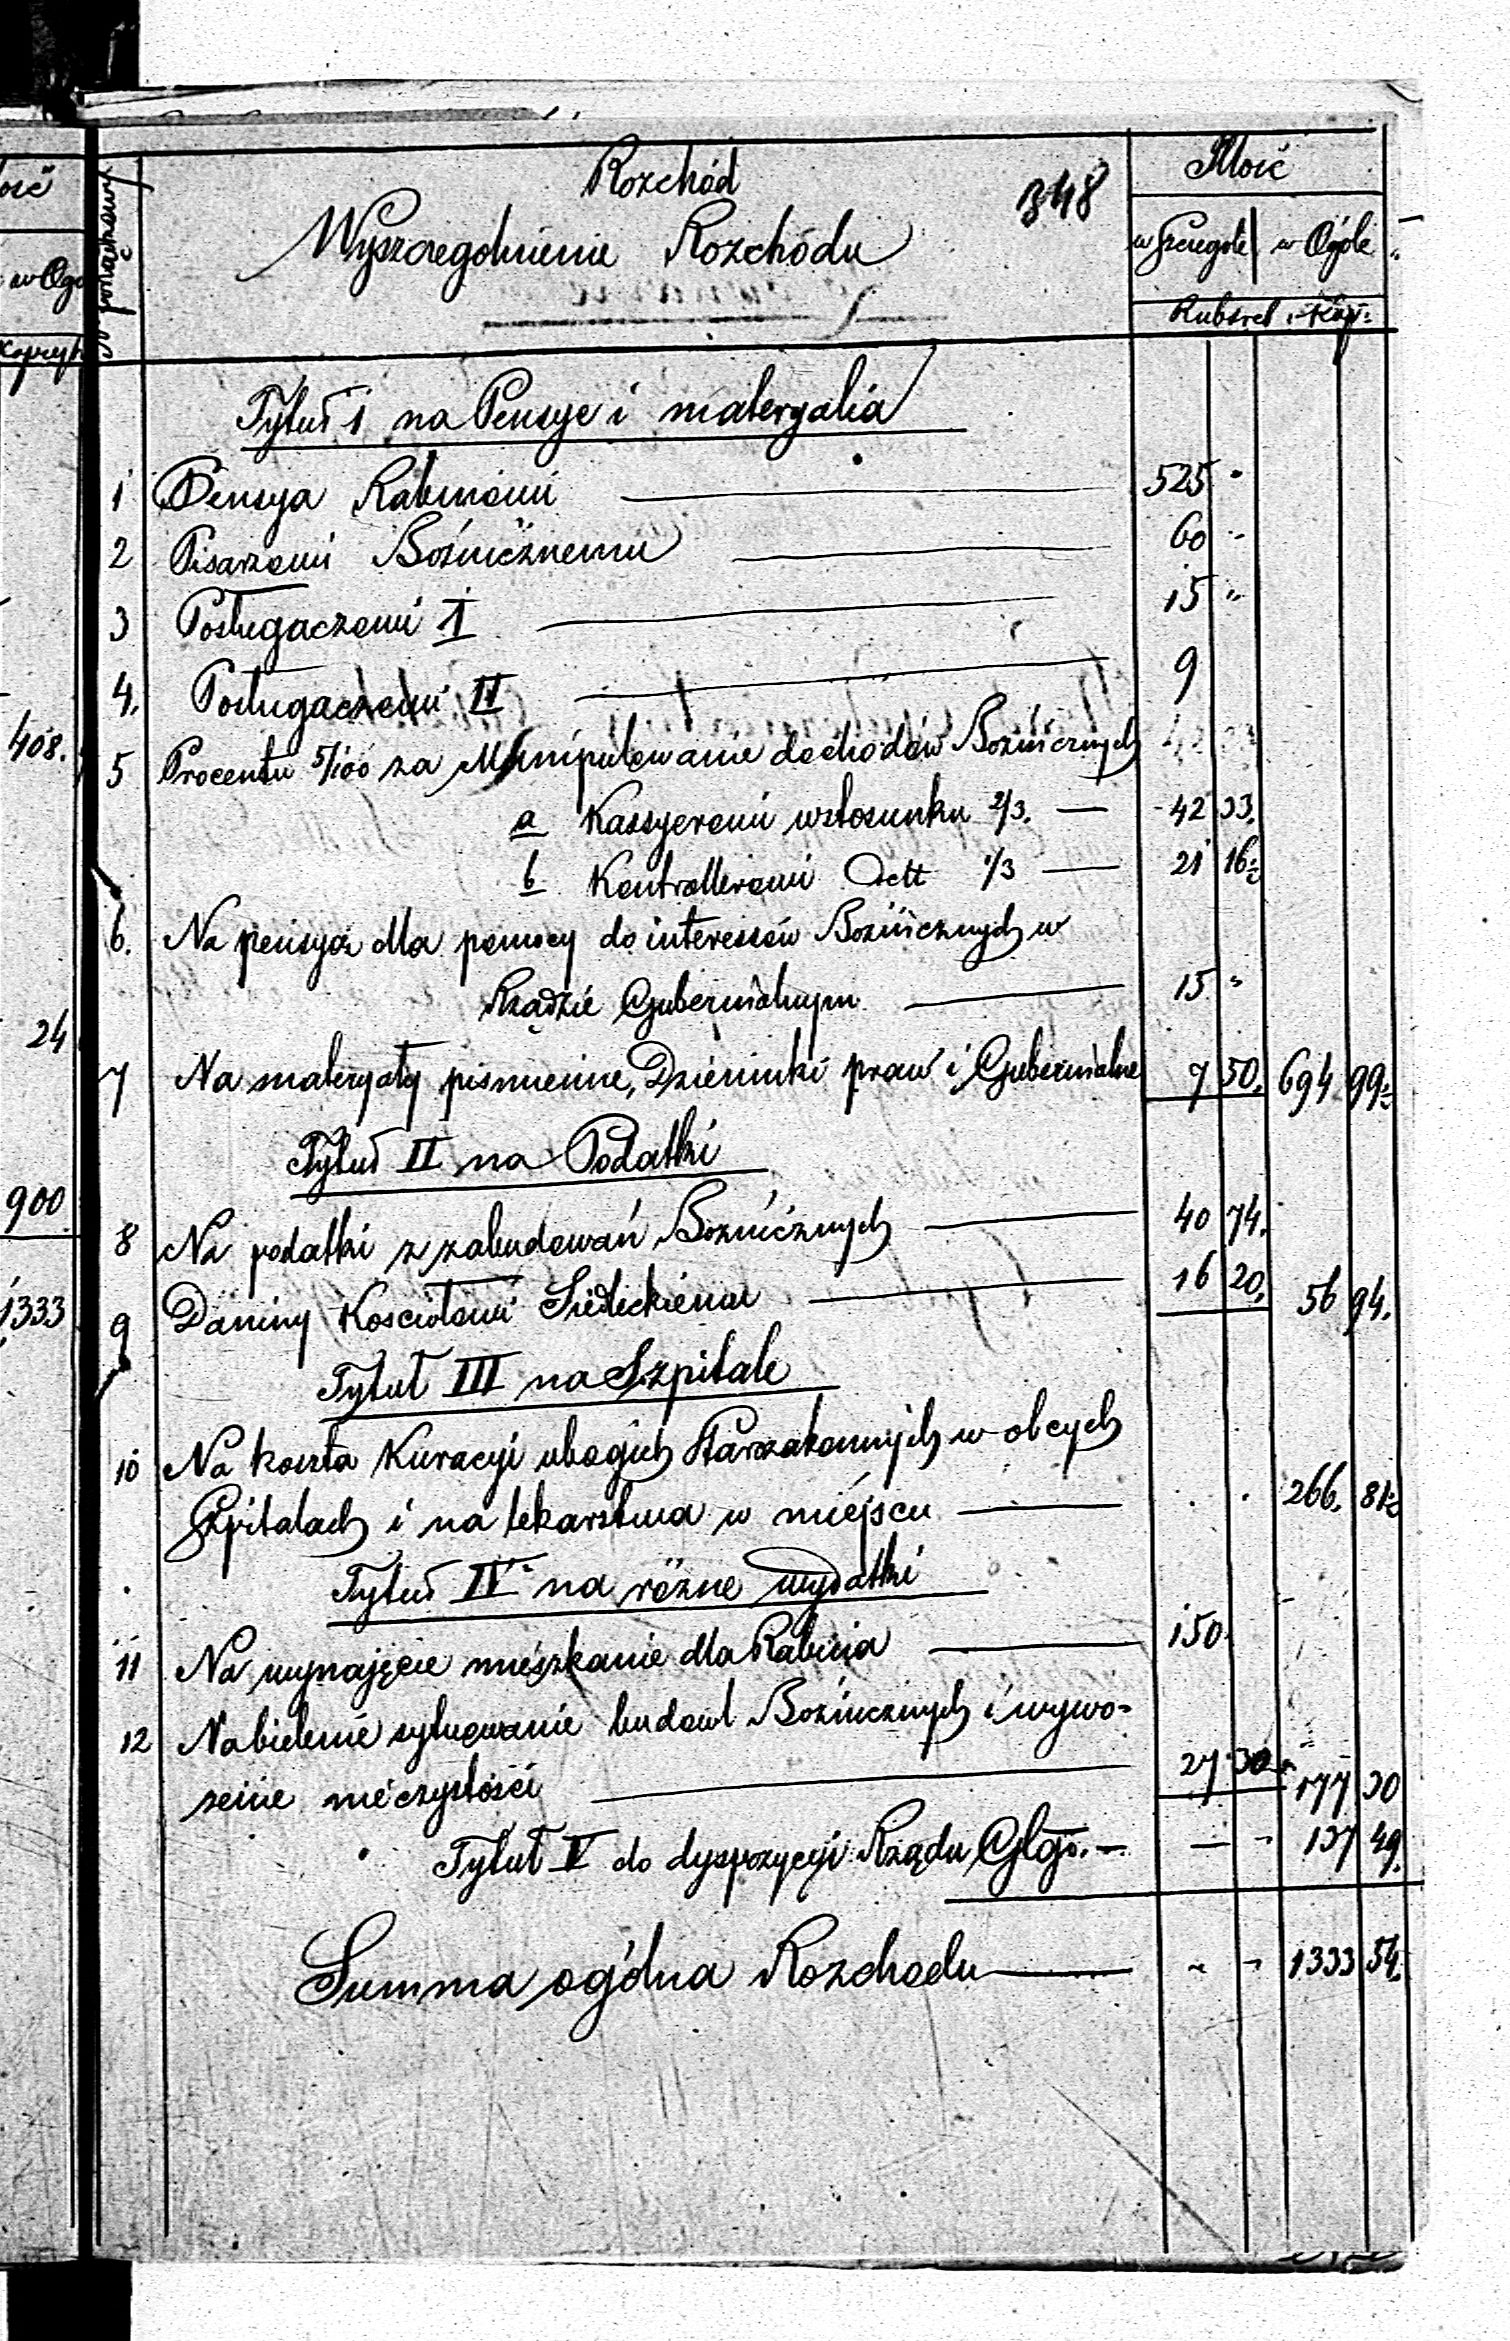 Rozchód
348
Ilość
Wyszczegolnienie Rozchodu
w szczegole w Ogóle
Rubsrel. Kop:
Tytuł 1 na Pensye i materyalia
1 Pensya Rabinowi 525 "
2 Pisarzowi Bożnicznemu 60 "
3 Posługaczowi I 15 "
4. Posługaczowi II 9
5 Procentu 5/100 za Manipulowanie dochodów Bożnicznych
a Kassyerowi wstosunku 2/3. 42 33.
b Kontrollerowi Dett 1/3 21 16½
6. Na pensya dla pomocy do interessów Bożnicznych w
Rządzie Gubernialnym 15 "
7 Na materyały piśmienne, Dzienniki praw i Gubernialne 7 50. 694 99½
Tytuł II na Podatki
8 Na podatki z zabudowań Bożnicznych 40 74.
9 Daniny Kosciołowi Siedleckiemu 16 20. 56 94.
Tytuł III na Szpitale
10 Na koszta Kuracyi ubogich Starozakonnych w obcych
Szpitalach i na lekarstwa w miejscu 266. 81½
Tytuł IV na różne wydatki
11 Na wynajęcie mieszkanie dla Rabina 150
12 Na bielenie budowl Bożnicznych i wywo-
zenie nieczystości 27 30 177 30
Tytuł V do dyspozycyi Rządu Glgo. 137 49.
Summa ogólna Rozchodu 1333 54.
oić
w Ogó
408.
24
900
1333